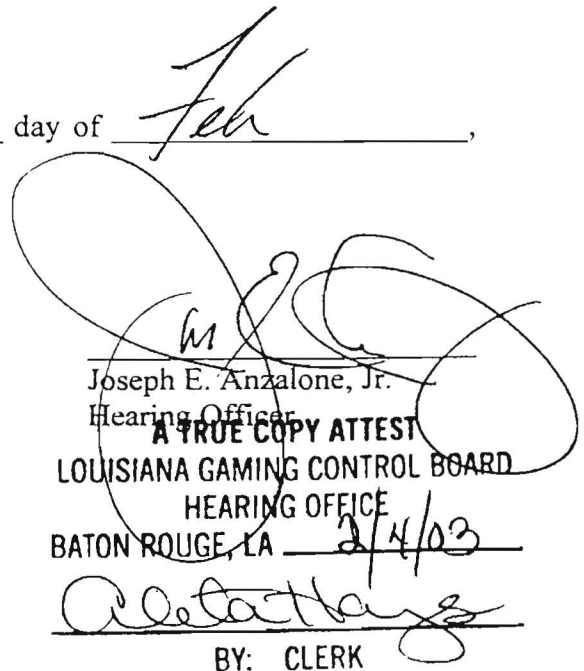 day of Feb,
Joseph E. Anzalone, Jr.
Hearing Officer
A TRUE COPY ATTEST
LOUISIANA GAMING CONTROL BOARD
HEARING OFFICE
BATON ROUGE, LA 2/4/03
Aleta Hays
BY: CLERK